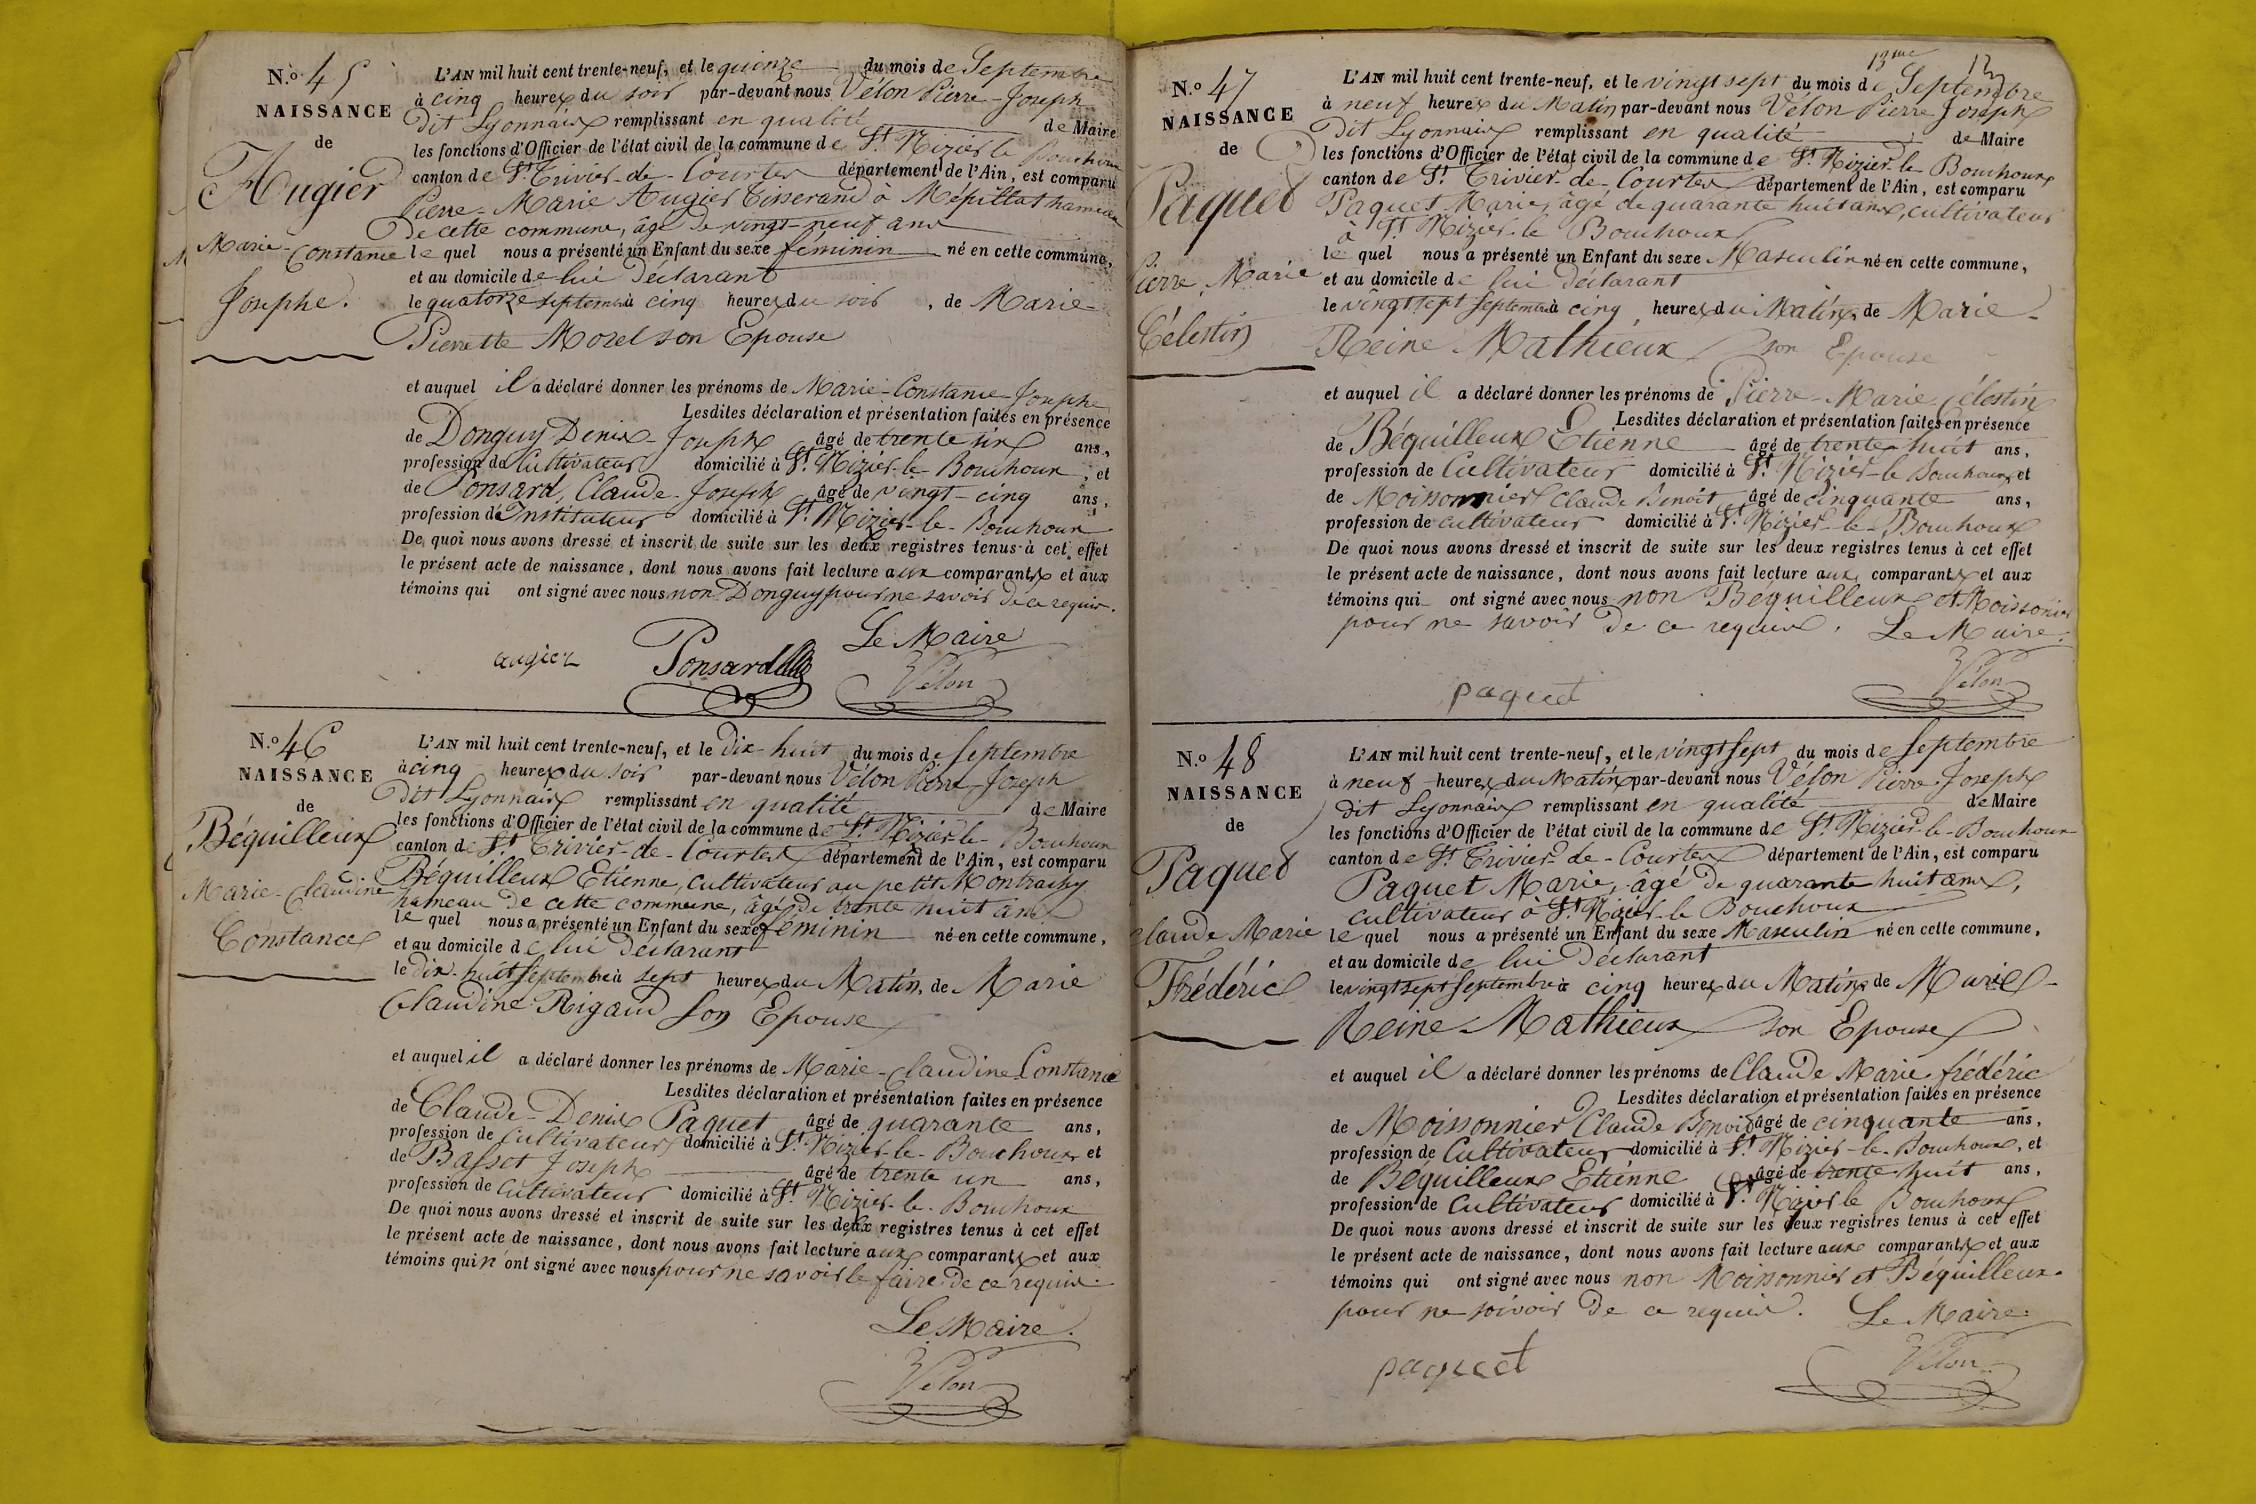 N.º 45
NAISSANCE
de
Augier
Marie-Constance
Josephe.
L'AN mil huit cent trente-neuf, et le quinze du mois de Septembre
à cinq heures du soir par-devant nous Vélon Pierre-Joseph
dit Lyonnais remplissant en qualité de Maire
les fonctions d'Officier de l'état civil de la commune de St. Nizier le Bouchoux
canton de St. Trivier-de-Courtes département de l'Ain, est comparu
Pierre-Marie Augier Tisserand à Mépillat hameau
de cette commune, âgé de vingt-neuf ans
le quel nous a présenté un Enfant du sexe féminin né en cette commune,
et au domicile de lui déclarant
le quatorze septembre à cinq heures du soir, de Marie
Pierrette Morel son Epouse
et auquel il a déclaré donner les prénoms de Marie-Constance-Josephe
Lesdites déclaration et présentation faites en présence
de Donguy Denis-Joseph âgé de trente six ans,
profession de Cultivateur domicilié à St. Nizier-le-Bouchoux, et
de Ponsard, Claude-Joseph âgé de vingt-cinq ans,
profession de Instituteur domicilié à St. Nizier-le-Bouchoux
De quoi nous avons dressé et inscrit de suite sur les deux registres tenus à cet effet
le présent acte de naissance, dont nous avons fait lecture aux comparants et aux
témoins qui ont signé avec nous non Donguy pour ne savoir de ce requis.
Le Maire
augier Ponsard Vélon
N.º 46
NAISSANCE
de
Béquilleux
Marie-Claudine
Constance
L'AN mil huit cent trente-neuf, et le dix-huit du mois de Septembre
à cinq heures du soir par-devant nous Vélon Pierre-Joseph
dit Lyonnais remplissant en qualité de Maire
les fonctions d'Officier de l'état civil de la commune de St. Nizier-le-Bouchoux
canton de St. Trivier-de-Courtes département de l'Ain, est comparu
Béquilleux Etienne, cultivateur au petit Montrachy
hameau de cette commune, âgé de trente huit ans
le quel nous a présenté un Enfant du sexe féminin né en cette commune,
et au domicile de lui déclarant
le dix-huit Septembre à sept heures du Matin, de Marie
Claudine Rigaud son Epouse
et auquel il a déclaré donner les prénoms de Marie-Claudine Constance
Lesdites déclaration et présentation faites en présence
de Claude-Denis Paquet âgé de quarante ans,
profession de Cultivateur domicilié à St. Nizier-le-Bouchoux et
de Basset Joseph âgé de trente un ans,
profession de Cultivateur domicilié à St. Nizier-le-Bouchoux
De quoi nous avons dressé et inscrit de suite sur les deux registres tenus à cet effet
le présent acte de naissance, dont nous avons fait lecture aux comparants et aux
témoins qui n'ont signé avec nous pour ne savoir le faire de ce requis.
Le Maire.
Vélon
13me
13
N.º 47
NAISSANCE
de
Paquet
Pierre Marie
Célestin
L'AN mil huit cent trente-neuf, et le vingt sept du mois de Septembre
à neuf heures du Matin par-devant nous Vélon Pierre Joseph
dit Lyonnais remplissant en qualité de Maire
les fonctions d'Officier de l'état civil de la commune de St. Nizier-le-Bouchoux
canton de St. Trivier-de-Courtes département de l'Ain, est comparu
Paquet Marie, âgé de quarante huit ans, cultivateur
à St. Nizier-le Bouchoux
le quel nous a présenté un Enfant du sexe Masculin né en cette commune,
et au domicile de lui déclarant
le vingt sept Septembre à cinq heures du Matin, de Marie-
Reine Mathieux son Epouse
et auquel il a déclaré donner les prénoms de Pierre-Marie Célestin
Lesdites déclaration et présentation faites en présence
de Béquilleux Etienne âgé de trente-huit ans,
profession de Cultivateur domicilié à St. Nizier-le Bouchoux et
de Moissonnier Claude Benoit âgé de cinquante ans,
profession de cultivateur domicilié à St. Nizier-le-Bouchoux
De quoi nous avons dressé et inscrit de suite sur les deux registres tenus à cet effet
le présent acte de naissance, dont nous avons fait lecture aux comparants et aux
témoins qui ont signé avec nous non Béquilleux et Moissonier
pour ne savoir de ce requis. Le Maire.
paquet Vélon
N.º 48
NAISSANCE
de
Paquet
Claude Marie
Frédéric
L'AN mil huit cent trente-neuf, et le vingt sept du mois de Septembre
à neuf heures du Matin par-devant nous Vélon Pierre Joseph
dit Lyonnais remplissant en qualité de Maire
les fonctions d'Officier de l'état civil de la commune de St. Nizier-le-Bouchoux
canton de St. Trivier-de-Courtes département de l'Ain, est comparu
Paquet Marie, âgé de quarante huit ans,
cultivateur à St. Nizier-le Bouchoux
le quel nous a présenté un Enfant du sexe Masculin né en cette commune,
et au domicile de lui déclarant
le vingt sept Septembre à cinq heures du Matin de Marie-
Reine Mathieux son Epouse
et auquel il a déclaré donner les prénoms de Claude Marie frédéric
Lesdites déclaration et présentation faites en présence
de Moissonnier Claude Benoit âgé de cinquante ans,
profession de Cultivateur domicilié à St. Nizier-le-Bouchoux, et
de Béquilleux Etienne âgé de trente huit ans,
profession de Cultivateur domicilié à St. Nizier le Bouchoux
De quoi nous avons dressé et inscrit de suite sur les deux registres tenus à cet effet
le présent acte de naissance, dont nous avons fait lecture aux comparants et aux
témoins qui ont signé avec nous non Moissonnier et Béquilleux.
pour ne savoir de ce requis. Le Maire.
paquet Vélon